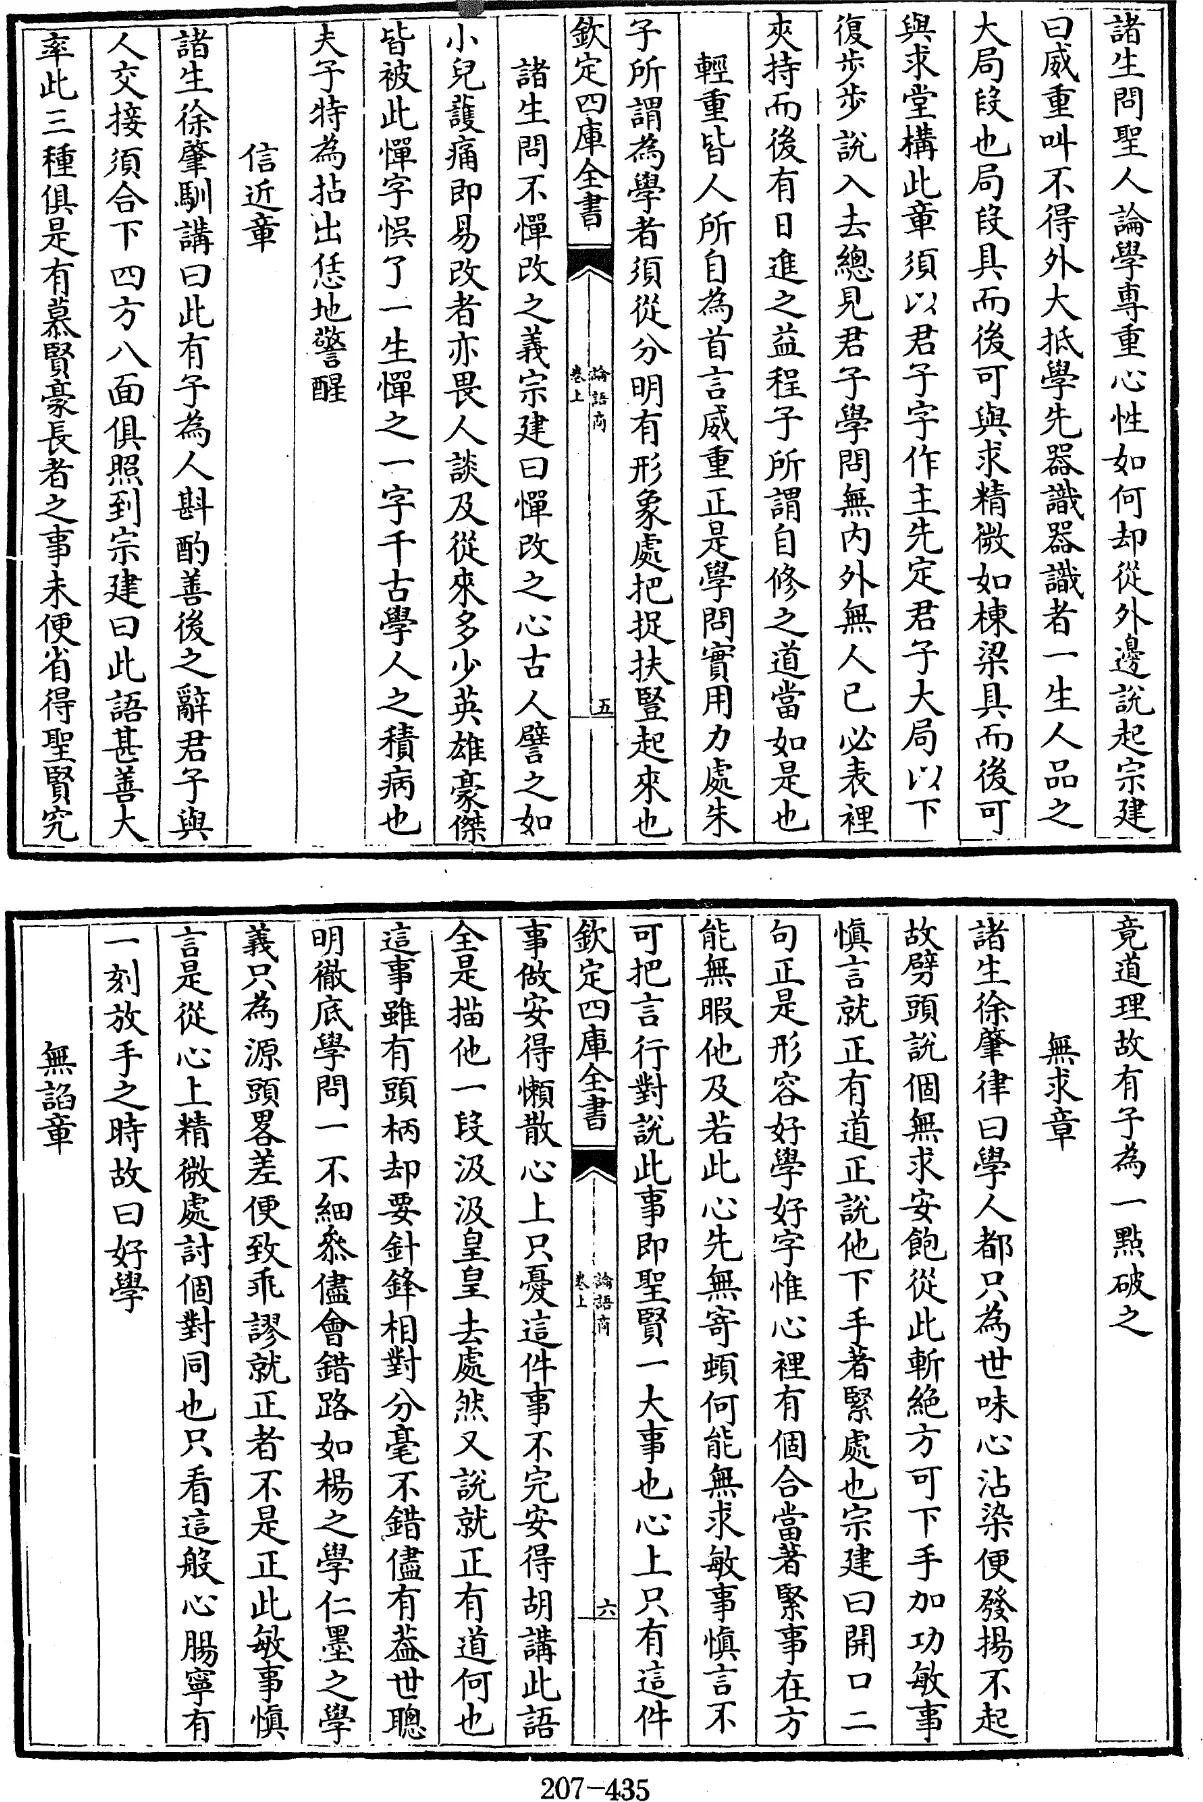 諸生問聖人論學專重心性如何却從外邊說起宗建
曰威重叫不得外大抵學先器識器識者一生人品之
大局段也局段具而後可與求精微如棟梁具而後可
與求堂構此章須以君子字作主先定君子大局以下
復步步說入去總見君子學問無内外無人已必表裡
夾持而後有日進之益程子所謂自修之道當如是也
輕重皆人所自為首言威重正是學問實用力處朱
子所謂為學者須從分明有形象處把捉扶豎起來也
欽定四庫全書
論語商
卷上
五
諸生問不憚改之義宗建曰憚改之心古人譬之如
小兒護痛即易改者亦畏人談及從來多少英雄豪傑
皆被此憚字悞了一生憚之一字千古學人之積病也
夫子特為拈出恁地警醒
信近章
諸生徐肇馴講曰此有子為人斟酌善後之辭君子與
人交接須合下四方八面俱照到宗建曰此語甚善大
率此三種俱是有慕賢豪長者之事未便省得聖賢究
竟道理故有子為一點破之
無求章
諸生徐肇律曰學人都只為世味心沾染便發揚不起
故劈頭說個無求安飽從此斬絶方可下手加功敏事
慎言就正有道正說他下手著緊處也宗建曰開口二
句正是形容好學好字惟心裡有個合當著緊事在方
能無暇他及若此心先無寄頓何能無求敏事慎言不
可把言行對說此事即聖賢一大事也心上只有這件
欽定四庫全書
論語商
卷上
六
事做安得懶散心上只憂這件事不完安得胡講此語
全是描他一段汲汲皇皇去處然又說就正有道何也
這事雖有頭柄却要針鋒相對分毫不錯儘有葢世聰
明徹底學問一不細叅儘會錯路如楊之學仁墨之學
義只為源頭畧差便致乖謬就正者不是正此敏事慎
言是從心上精微處討個對同也只看這般心腸寧有
一刻放手之時故曰好學
無諂章
207-435